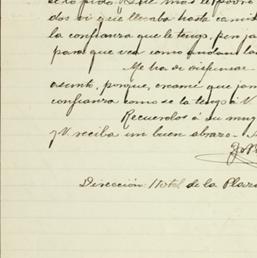 dos vi que llevaba hasta camis
la confianza que le tengo, pero ja
para que vea como andan las
Me ha de dispensar
asunto, porque, creamé que jam
confianza como se la tengo á V
Recuerdos á su muy
y V. reciba un buen abrazo.
Dirección: Hotel de la Plaza